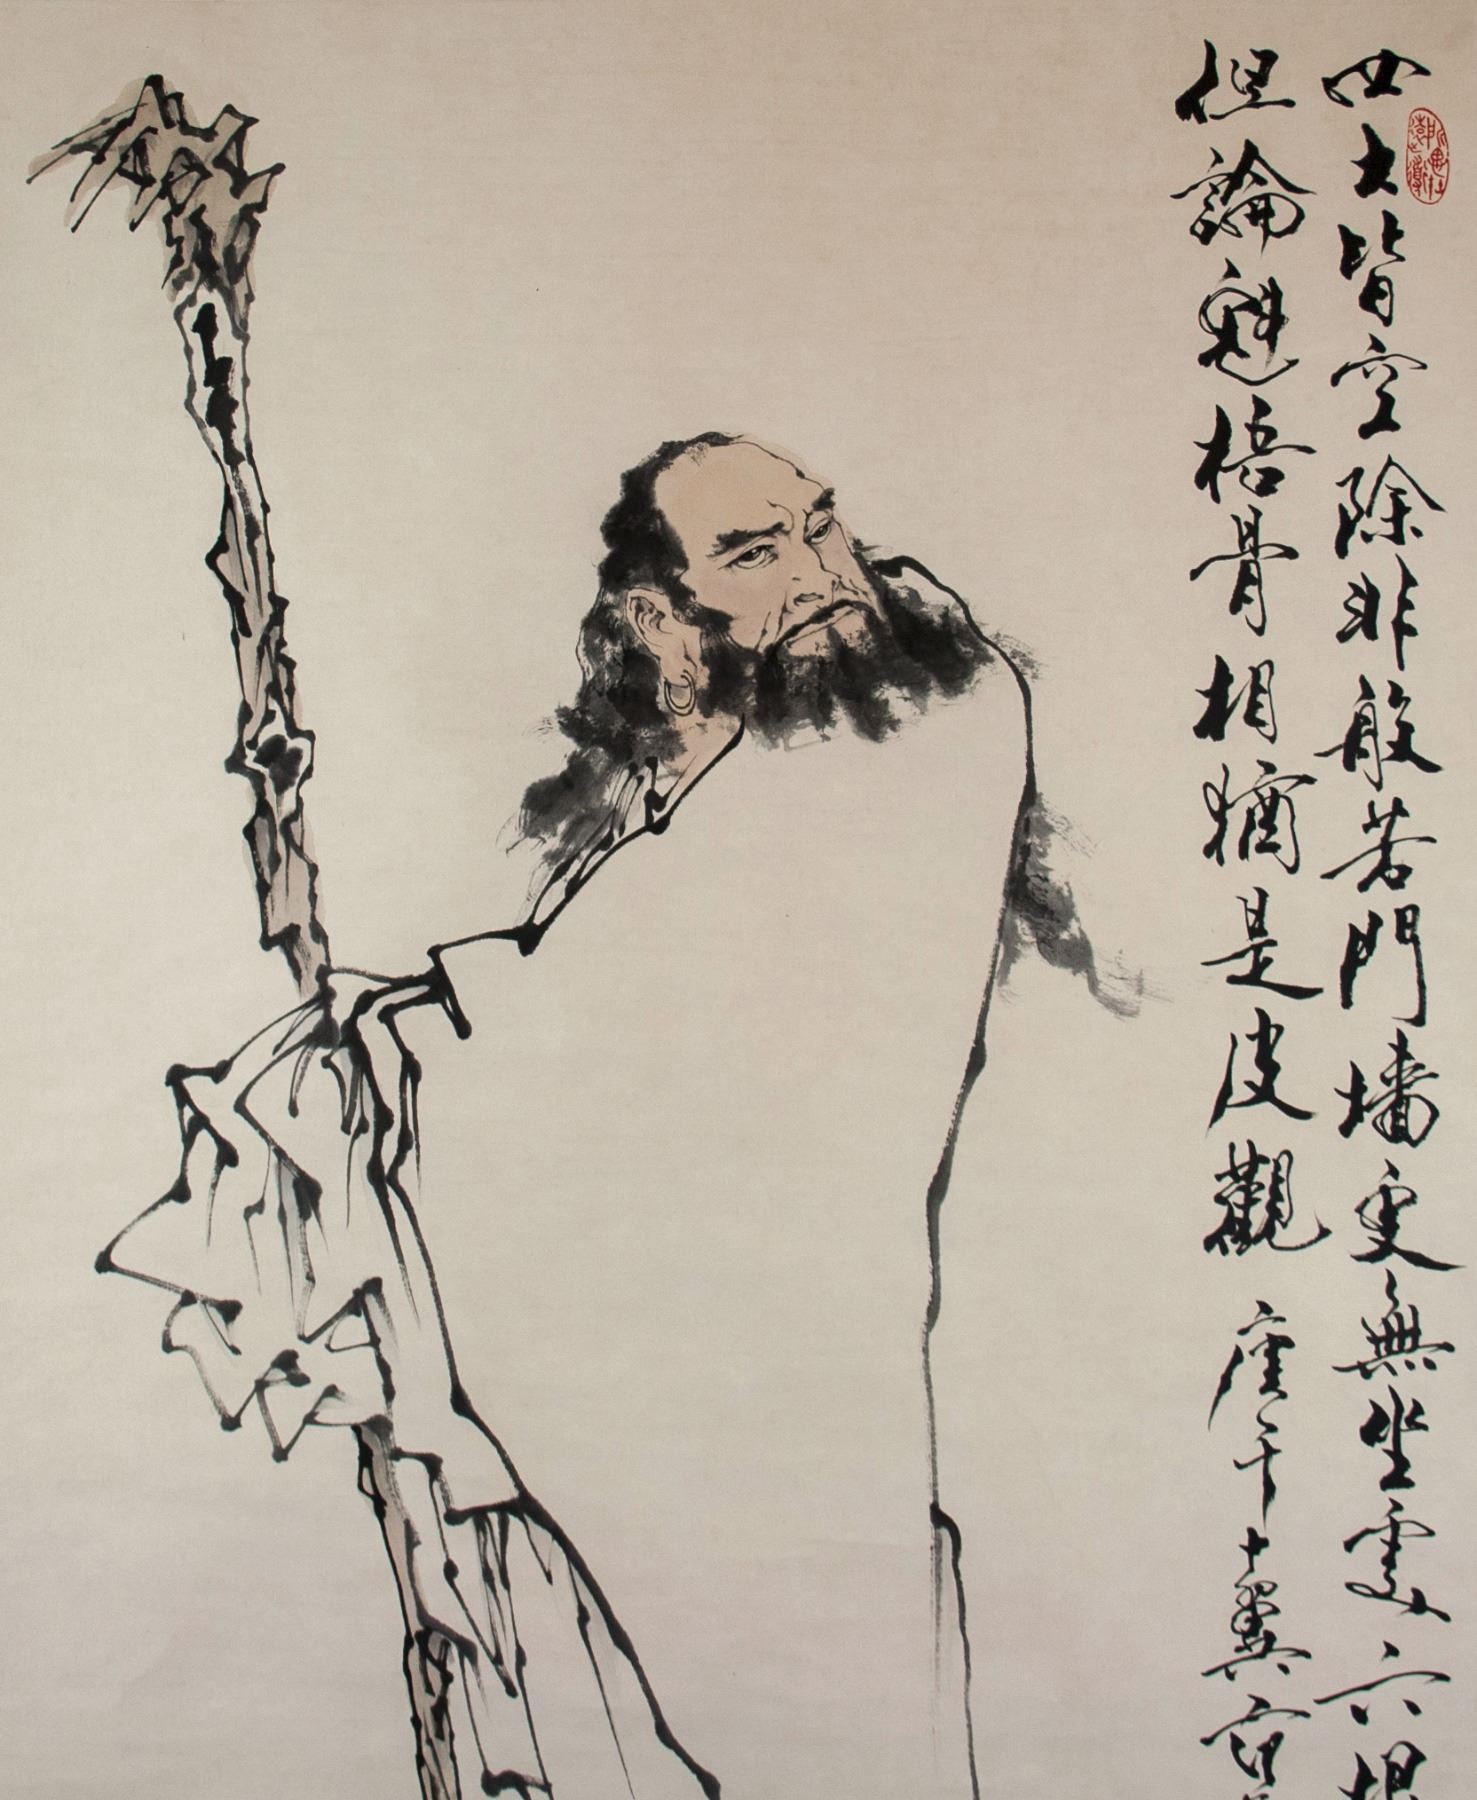 四大皆空除非般若門墻更無坐處六根
但論魁梧骨相猶是皮觀 庚午十翼范